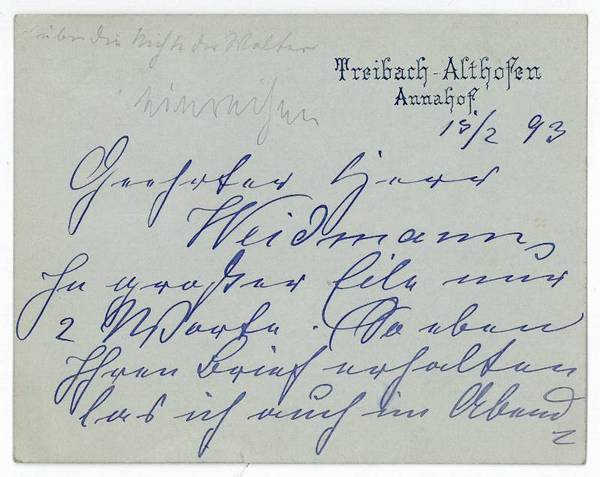 über die Nichte der Wolter
einreihen
Treibach-Althofen
Annahof
15/2 93
Geehrter Herr
Weidmann,
In großer Eile nur
2 Worte. So eben
Ihren Brief erhalten
las ich auch im Abend